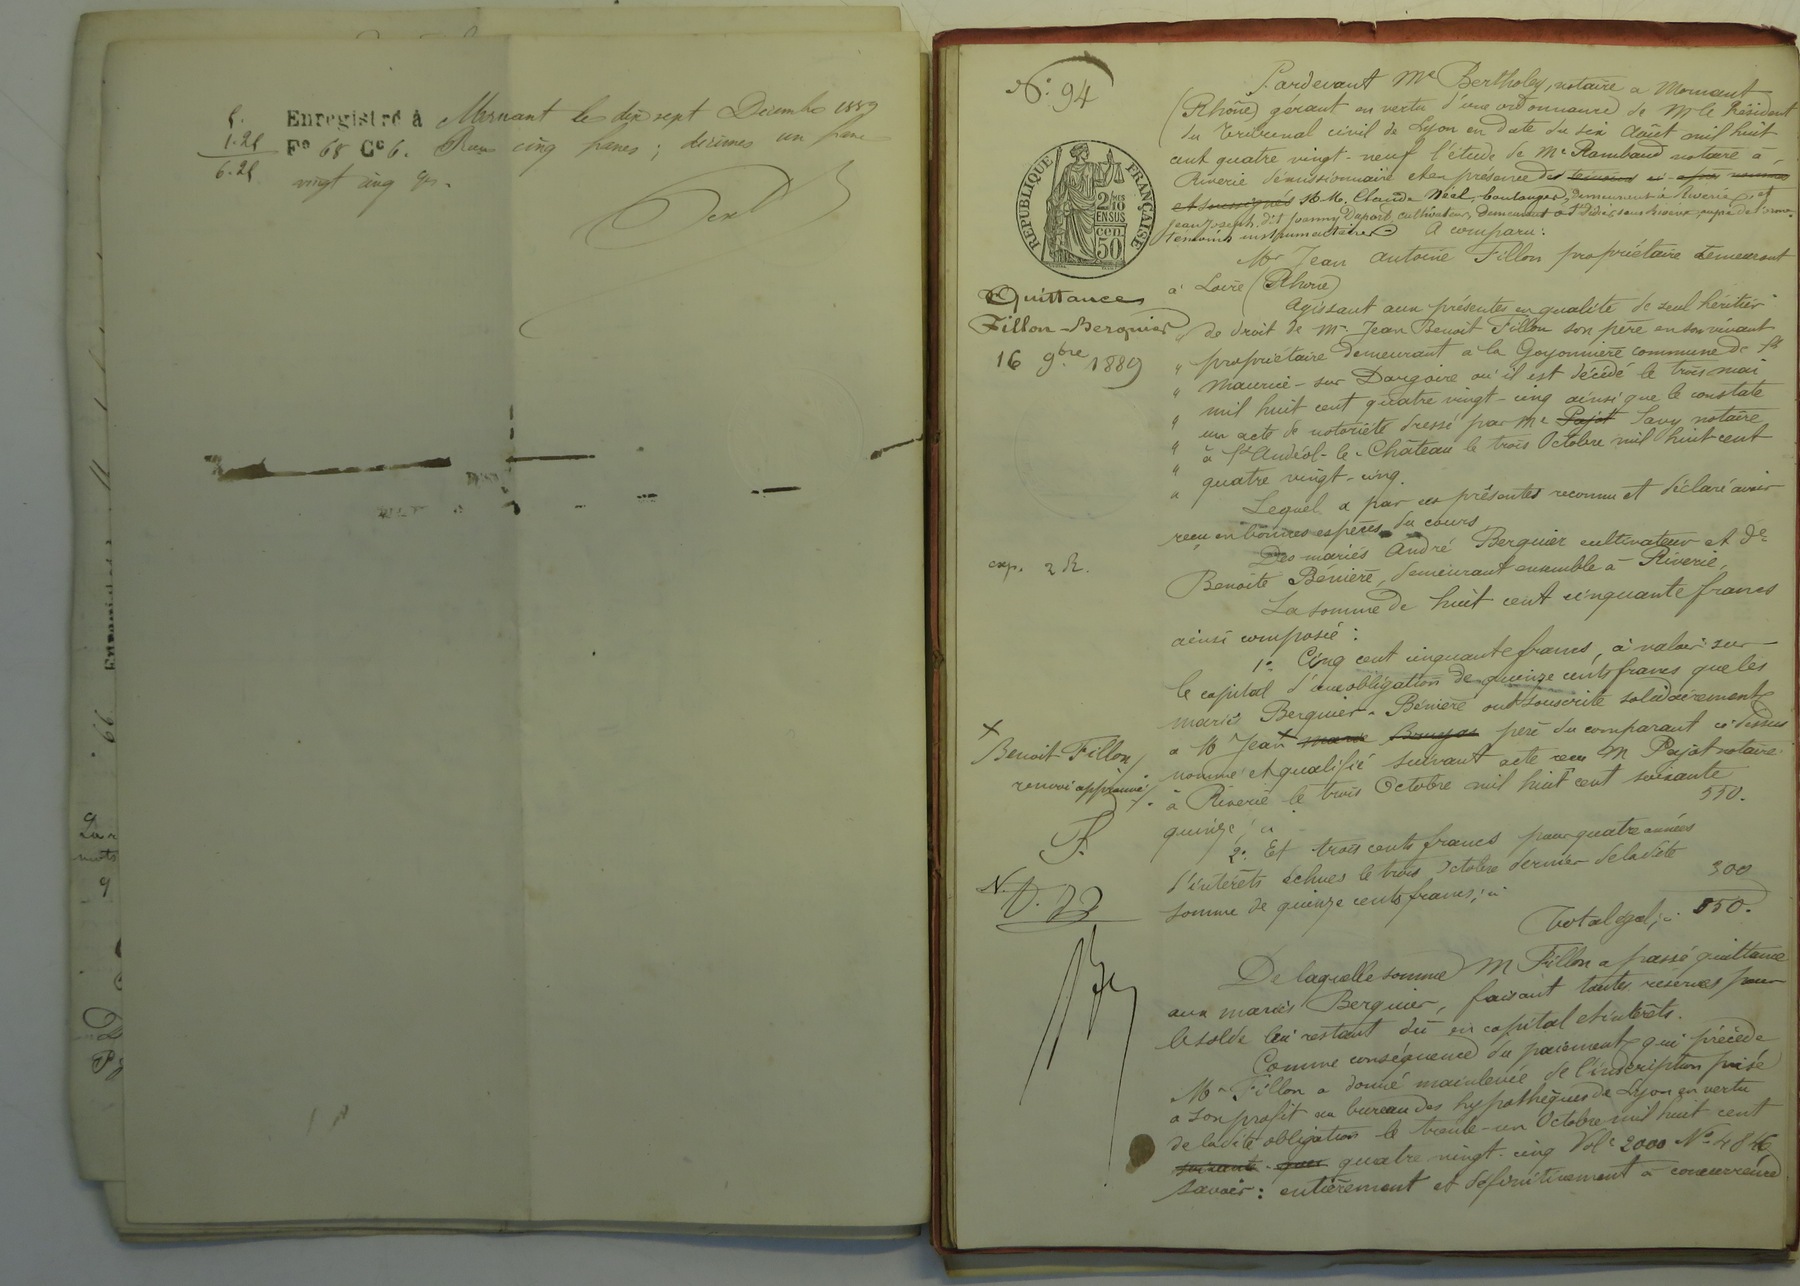 5.
1.25
6.25
Enregistré à Mornant le dix sept Décembre 1889
F° 68 C° 6. Reçu cinq francs ; décimes un franc
vingt cinq c.
N° 94
RÉPUBLIQUE FRANÇAISE
2/10
EN SUS
50 cen
Quittance
Fillon-Berquier
16 9bre 1889
exp. 2 R.
Pardevant Me Bertholey, notaire à Mornant
(Rhône) gérant en vertu d'une ordonnance de Mr le Président
du Tribunal civil de Lyon en date du six Août mil huit
cent quatre vingt-neuf l'étude de Me Rambaud notaire à
Riverie démissionnaire et en présence des témoins ci-après nommés
et soussignés M.M. Claude Néel, boulanger, demeurant à Riverie et
Jean Joseph dit Joanny Duport, cultivateur, demeurant à St Didier sous Riverie
témoins instrumentaires A comparu :
Mr Jean Antoine Fillon propriétaire demeurant
à Loire (Rhône)
Agissant aux présentes en qualité de seul héritier
de droit de Mr Jean Benoit Fillon son père en son vivant
" propriétaire demeurant à la Goyonnière commune de St
" Maurice-sur Dargoire où il est décédé le trois mai
" mil huit cent quatre vingt-cinq ainsi que le constate
" un acte de notoriété dressé par Me Pajot Savy notaire
" à St Andéol-le-Château le trois Octobre mil huit cent
" quatre vingt-cinq.
Lequel a par ces présentes reconnu et déclaré avoir
reçu en bonnes espèces du cours
Des mariés André Berquier cultivateur et De
Benoîte Bénière, demeurant ensemble à Riverie,
La somme de huit cent cinquante francs
ainsi composée :
1° Cinq cent cinquante francs, à valoir sur
le capital d'une obligation de quinze cents francs que les
mariés Berquier-Bénière ont souscrite solidairement
à M Jean x père du comparant ci-dessus
nommé et qualifié suivant acte reçu Me Pajot notaire
à Riverie le trois Octobre mil huit cent soixante
quinze, ci 550.
2° Et trois cents francs pour quatre années
d'intérêts échues le trois Octobre dernier de la dite
somme de quinze cents francs, ci 300
Total égal, ci 850.
x
Benoit Fillon
renvoi approuvé
F.
N.
D. JJ
De laquelle somme M Fillon a passé quittance
aux mariés Berquier, faisant toutes réserves pour
le solde lui restant dû en capital et intérêts.
Comme conséquence du paiement qui précède
Mr Fillon a donné mainlevée de l'inscription prise
à son profit au bureau des hypothèques de Lyon en vertu
de la dite obligation le trente-un Octobre mil huit cent
soixante - quatre vingt-cinq Vol. 2000 N° 4846
savoir : entièrement et définitivement à concurrence